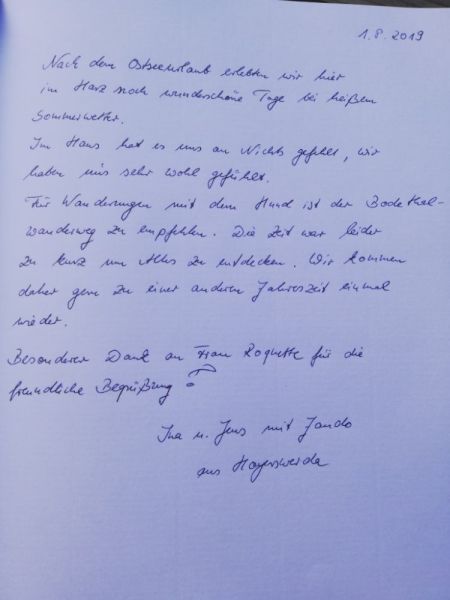 1.8.2019
Nach dem Ostseeurlaub erlebten wir hier
im Harz noch wunderschöne Tage bei heißem
Sommerwetter.
Im Haus hat es uns an Nichts gefehlt, wir
haben uns sehr wohl gefühlt.
Für Wanderungen mit dem Hund ist der Bodethal-
wanderweg zu empfehlen. Die Zeit war leider
zu kurz um Alles zu entdecken. Wir kommen
daher gern zu einer anderen Jahreszeit einmal
wieder.
Besonderer Dank an Frau Roquette für die
freundliche Begrüßung!
Ina u. Jens mit Jando
aus Hoyerswerda